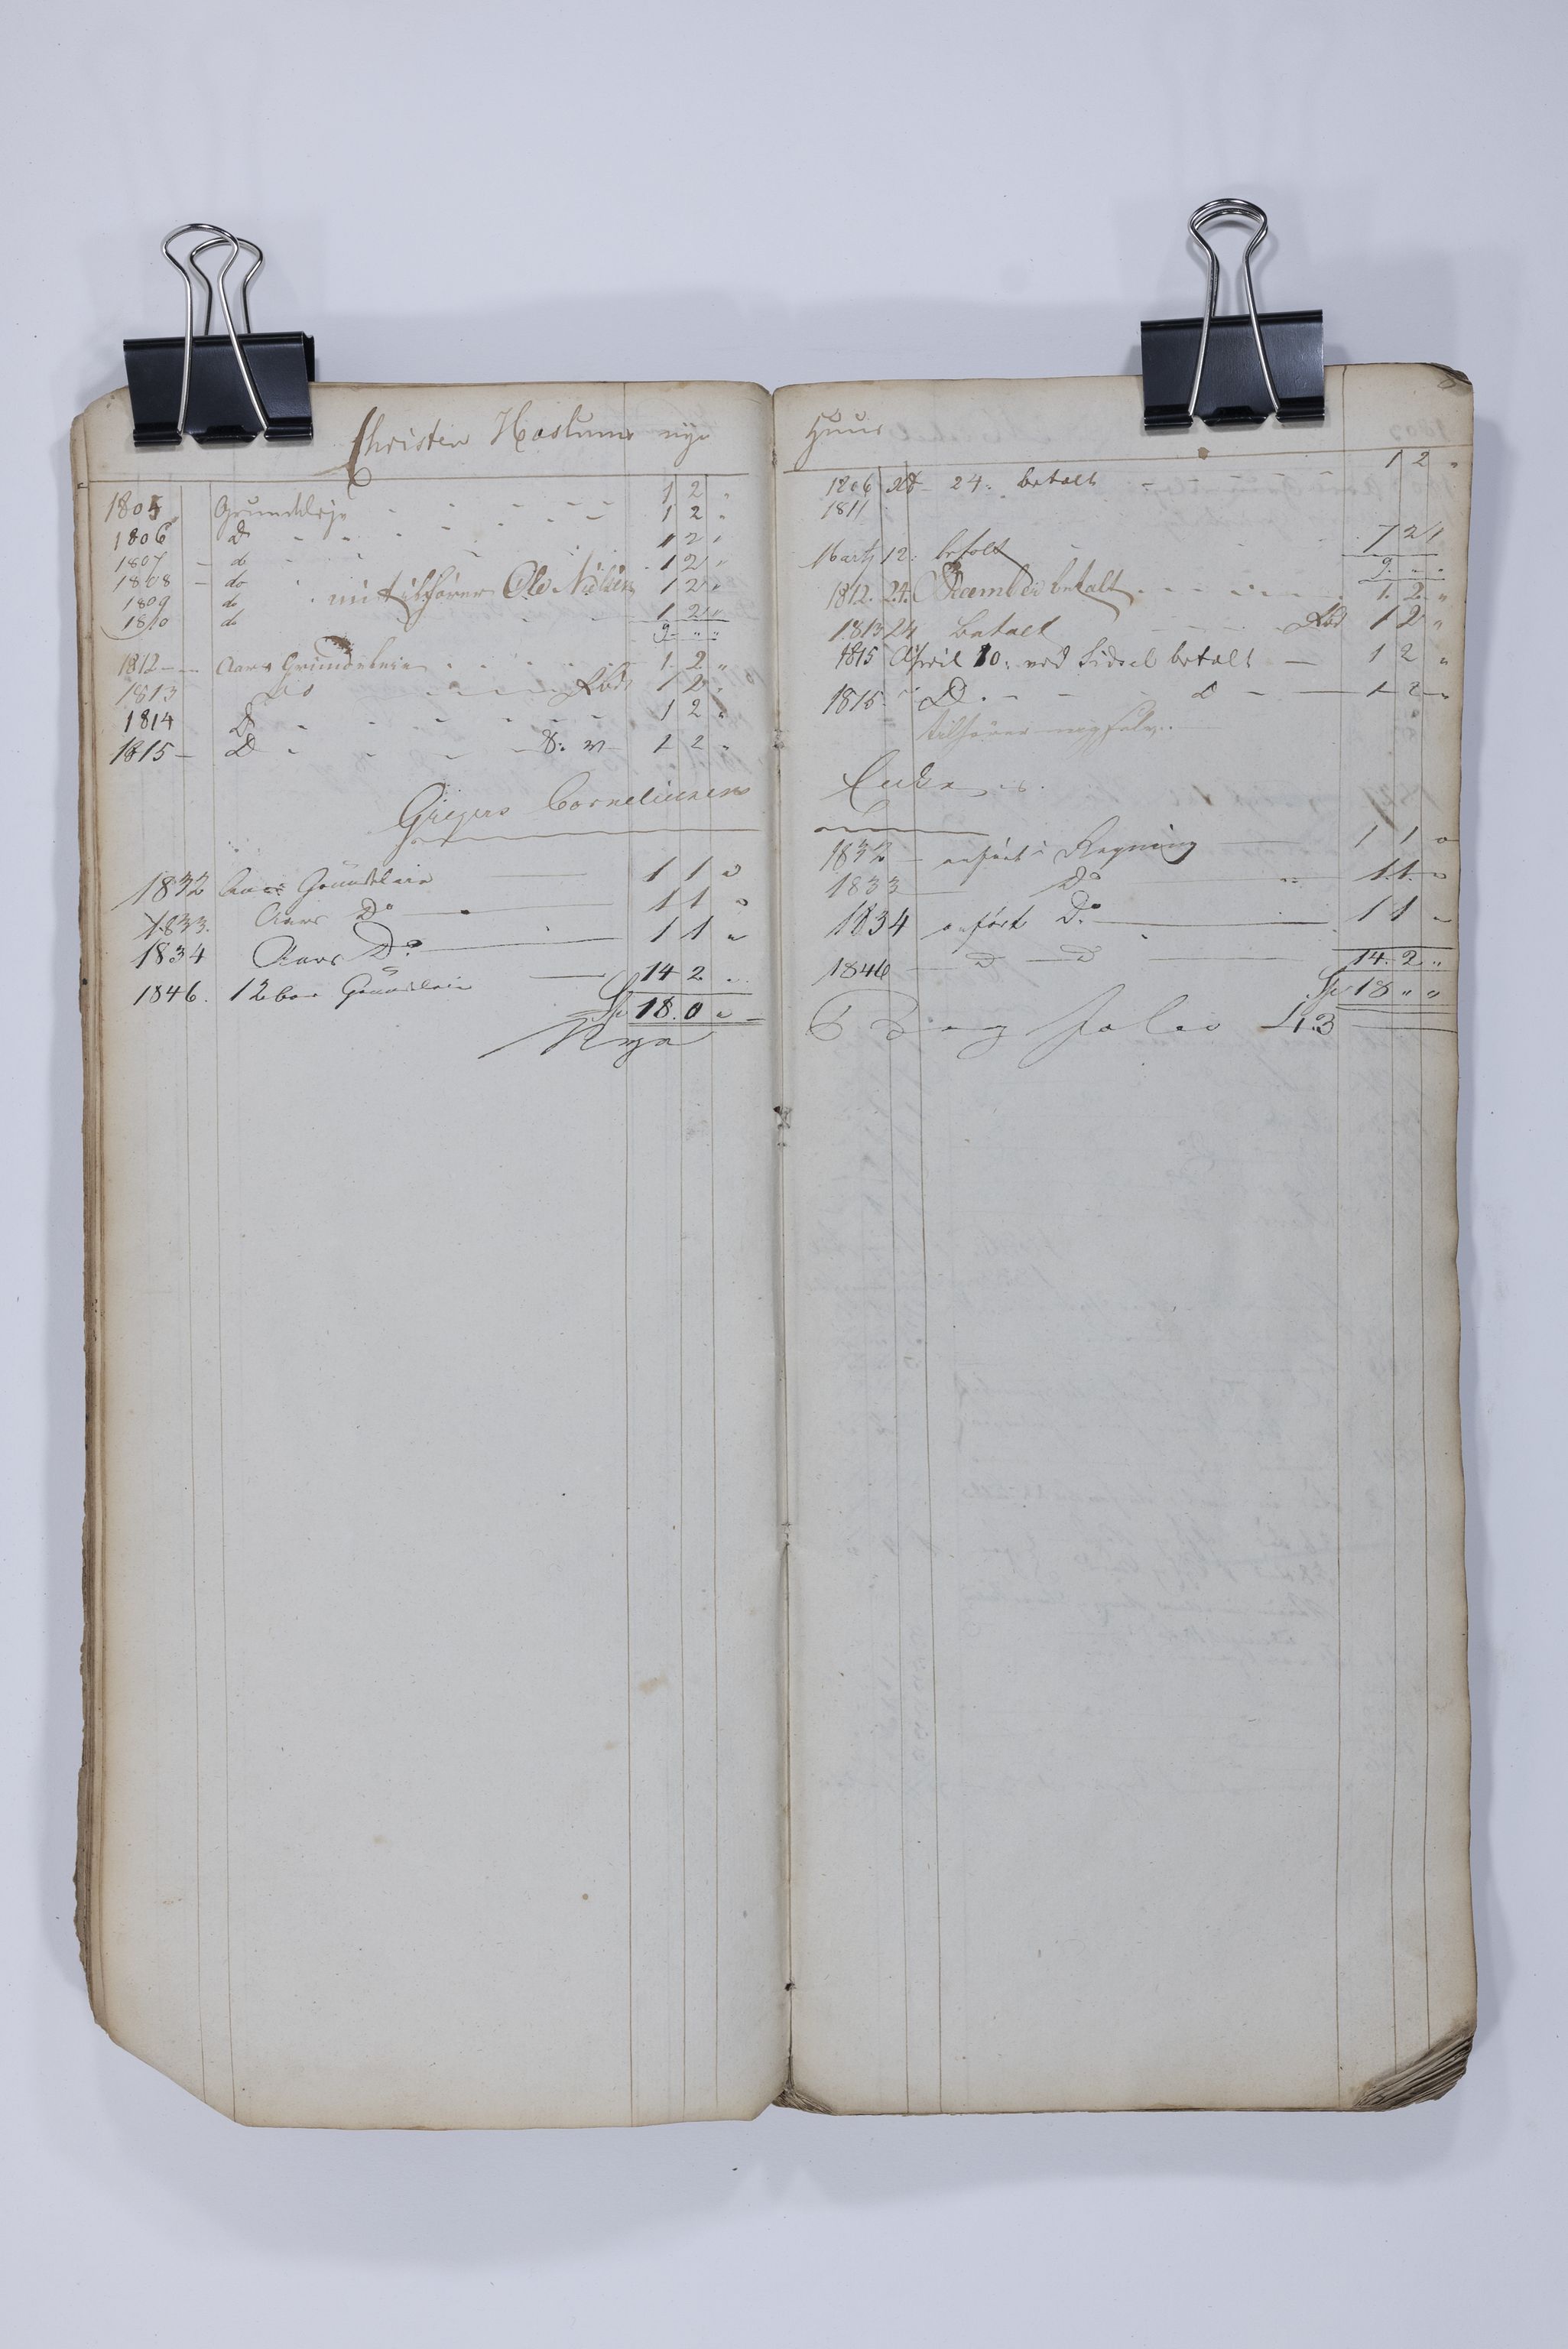 Christen Haslums nye
1805 Grundleje 1 2 "
1806 D 1 2 "
1807 - do 1 2 "
1808 - do 1 2 "
1809 do nu tilhører Ole Nilsen 1 2 "
1810 do 1 2 "
9 " "
1812 Aars Grundeleie 1 2 "
1813 Do Rbd 1 2 "
1814 D 1 2 "
1815 - D 1 2 "
Gregers Corneliusens
1832 Aars Grundeleie 1 1 "
1833. Aars Do 1 1 "
1834 Aars Do 1 1 "
1846. 12 Grundleie 14 2 "
Sp 18. 0 "
Nye
Huus
1806 24. betalt 1 2 "
1811
Martj 12. betalt 7 2 "
9 " "
1812. 24. December betalt 1. 2. "
1813 24 betalt Rbd 1 2 "
1815 April 10. ved Sidsel betalt 1 2 "
1815. D. d 1 2 "
tilhører meg selv.
Enke
1832 anført i Regning 1 1 "
1833 Do 1 1 "
1834 anført Do 1 1 "
1846 D D 14. 2 "
Sp 18 " "
Bog Folio 43